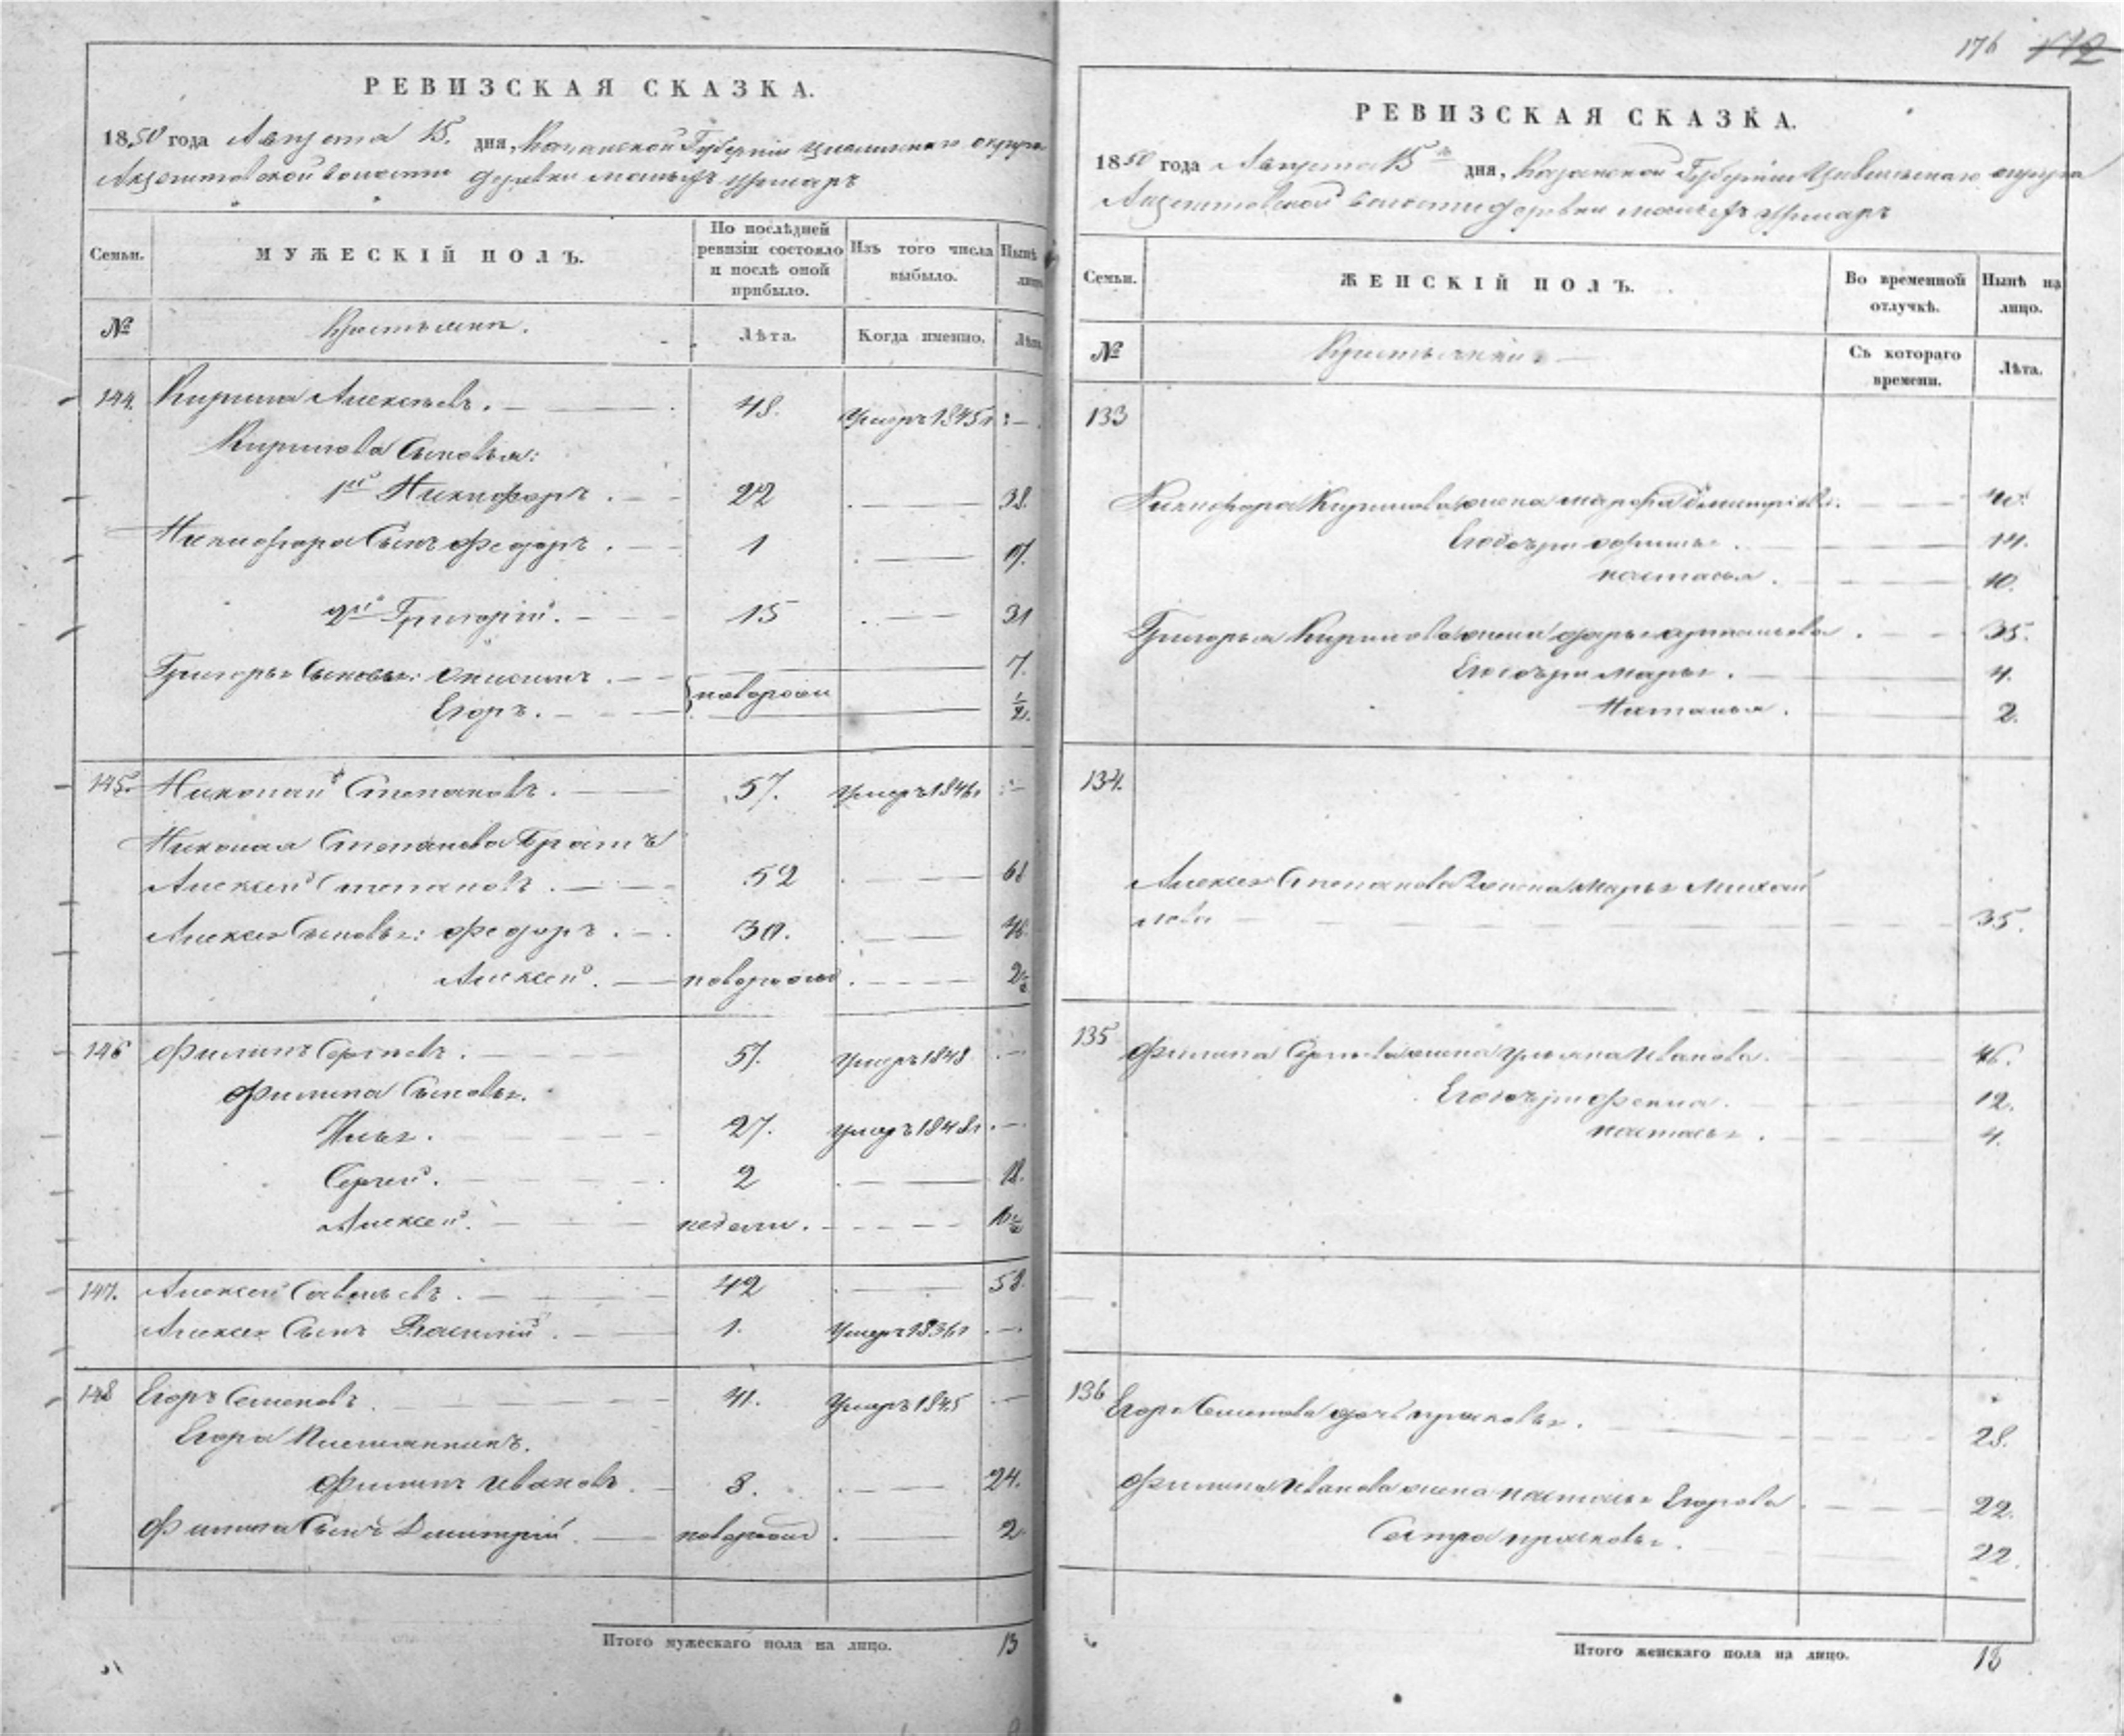 РЕВИЗСКАЯ СКАЗКА.
1850 года Августа 15. дня, Казанской Губернии Цивильскаго округа
волости деревни Малыхъ Урмаръ
Семьи.
МУЖЕСКІЙ ПОЛЪ.
По послѣдней ревизіи состояло и послѣ оной прибыло.
Изъ того числа выбыло.
Нынѣ
№
Крестьяне.
Лѣта.
Когда именно.
Лѣта
144. Кирила Алексѣевъ. 48. Умеръ 1845 г
Кирилова Сыновья:
1й Никифоръ. 22 38.
Никифора Сынъ Федоръ. 1 17.
2й Григорій. 15 31
Григорья Сыновья: Онисимъ. 7.
новорожд
Егоръ. 1/2.
145. Николай Степановъ. 57. Умеръ 1846 г
Николая Степанова Братъ
Алексей Степановъ. 52 68
Алексея Сыновья: Федоръ. 30. 46.
Алексей. новорожд 2
146 Филипъ Сергѣевъ. 51. Умеръ 1848
Филипа Сыновья.
Илья. 27. Умеръ 1848 г
Сергей. 2 18.
Алексей. недели. 16
147. Алексей Савельевъ. 42 58.
Алексея Сынъ Василий. 1. Умеръ 1836 г
148 Егоръ Семеновъ. 41. Умеръ 1845
Егора Племянникъ.
Филипъ Ивановъ. 8. 24.
Филипа Сынъ Дмитрий. новорожд 2
Итого мужескаго пола на лицо. 13
176 172
РЕВИЗСКАЯ СКАЗКА.
1850 года Августа 15 дня, Казанской Губерніи Цивильскаго округа
волости деревни Малыхъ Урмаръ
Семьи.
ЖЕНСКІЙ ПОЛЪ.
Во временной отлучкѣ.
Нынѣ на лицо.
№
Крестьянки
Съ котораго времени.
Лѣта.
133
Никифора Кирилова жена Марфа Дмитриева. 40.
Его дочери 14.
Настасья. 10.
Григорья Кирилова жена Дарья 35.
Его дочери Марья. 4.
Наталья. 2.
134.
Алексея Степанова жена Марья Михай
лова 35.
135 Филипа Сергѣева жена Ульяна Иванова. 46.
Его дочери Фекла. 12.
Настасья. 4.
136 Егора Семенова дочь Прасковья. 28.
Филипа Иванова жена Настасья Егорова 22.
Сестра Прасковья. 22.
Итого женскаго пола на лицо. 13